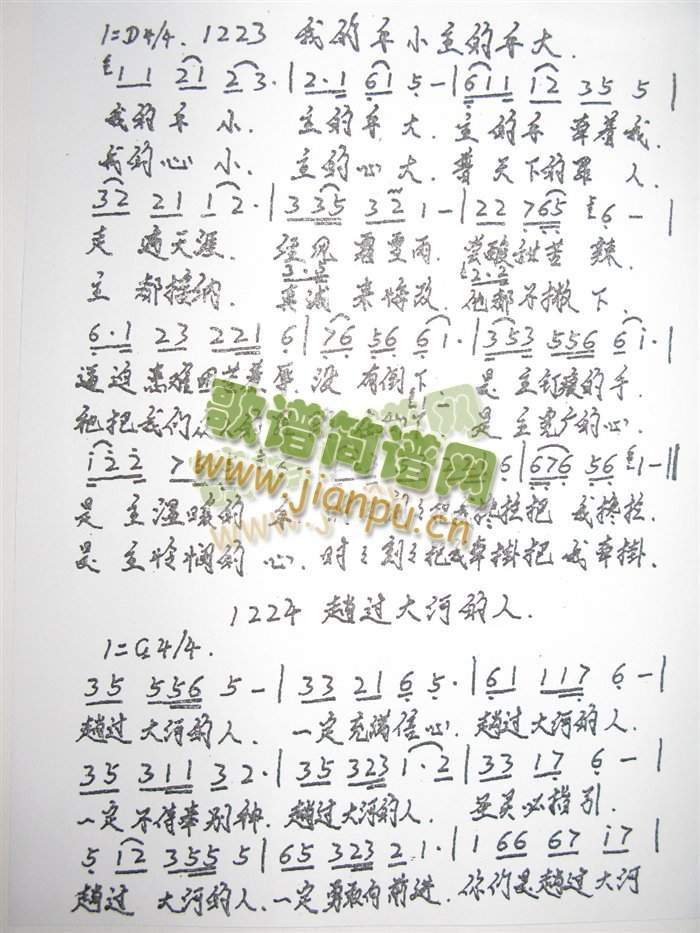 1=D4/4. 1223 我的手小主的手大.
1 1 2 1 2 3· | 2· 1 6 1 5 - | 6 1 1 1·2 3 5 5 |
我的手 小. 主的手 大. 主 的手 牵着我.
我的心 小. 主的心 大. 普天下的罪 人.
3 2 2 1 1 2· | 3 3 5 3 2 1 - | 2 2 7 6 5 6 - |
走 遍天涯. 经风霜 雪雨. 尝酸甜苦 辣.
3·5 2·2
主 都接纳. 真诚 来悔改. 他都不撇 下.
6·1 2 3 2 2 1 6 | 7 6 5 6 6 1· | 3 5 3 5 5 6 6 1· |
逼迫患难 没 有倒下 是 主钉痕的手.
祂把我们 是 主宽广的心.
1 2 2 7 6 | 6 7 6 5 6 1 - ||
是 主温暖的 手. 把 我扶拉.
是 主怜悯的 心. 时时刻刻把我牵掛把 我牵掛.
1224 趟过大河的人.
1=G4/4.
3 5 5 5 6 5 - | 3 3 2 1 6 5· | 6 1 1 1 7 6 - |
趟过 大河的人. 一定充满信心. 趟过大河的人.
3 5 3 1 1 3 2· | 3 5 3 2 3 1·2 | 3 3 1 7 6 - |
一定不侍奉别神. 趟过大河的人. 圣灵必指引.
5 1 2 3 5 5 5 | 6 5 3 2 3 2 1· | 1 6 6 6 7 1 7 |
趟过 大河的人. 一定勇敢向前进. 你们是趟过大河
歌谱简谱网
www.jianpu.cn